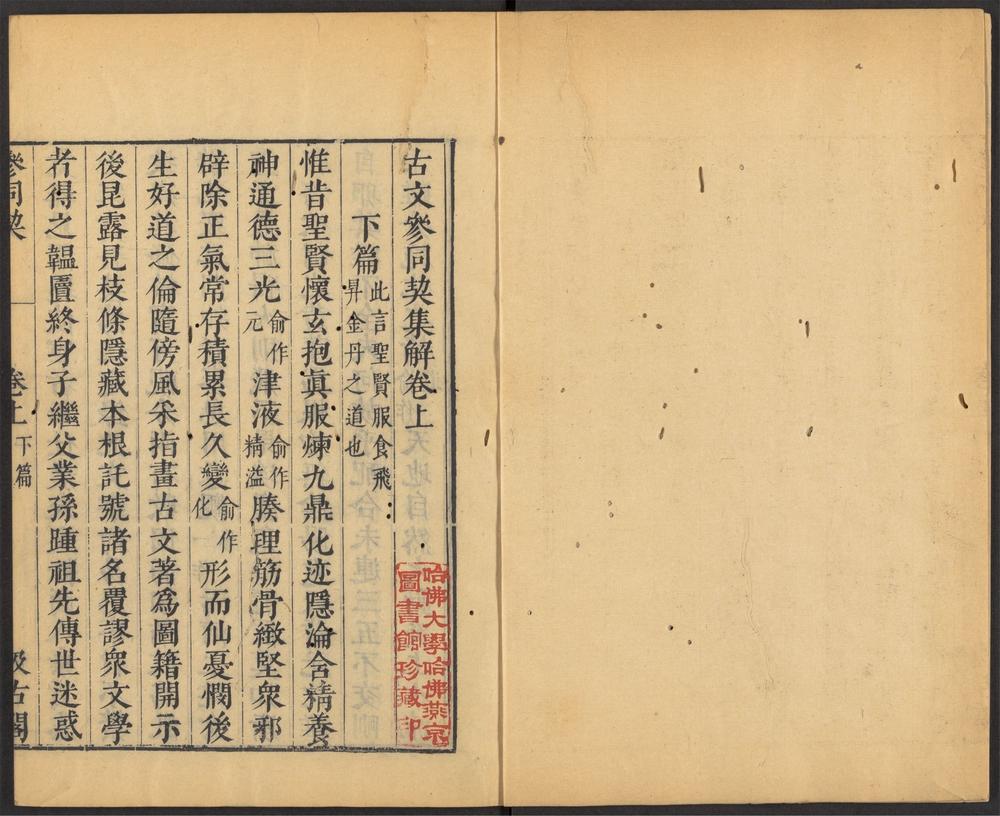 古文參同契集解卷上
下篇 此言聖賢服食飛
昇金丹之道也
惟昔聖賢懷玄抱眞服煉九鼎化迹隱淪含精養
神通德三光俞作元津液俞作精溢腠理筋骨緻堅衆邪
辟除正氣常存積累長久變俞作化形而仙憂憫後
生好道之倫隨傍風釆指畫古文著爲圖籍開示
後昆露見枝條隱藏本根託號諸名覆謬衆文學
者得之韞匵終身子繼父業孫踵祖先傳世迷惑
參同契 卷上 下篇 汲古閣
哈佛大學哈佛燕京
圖書館珍藏印